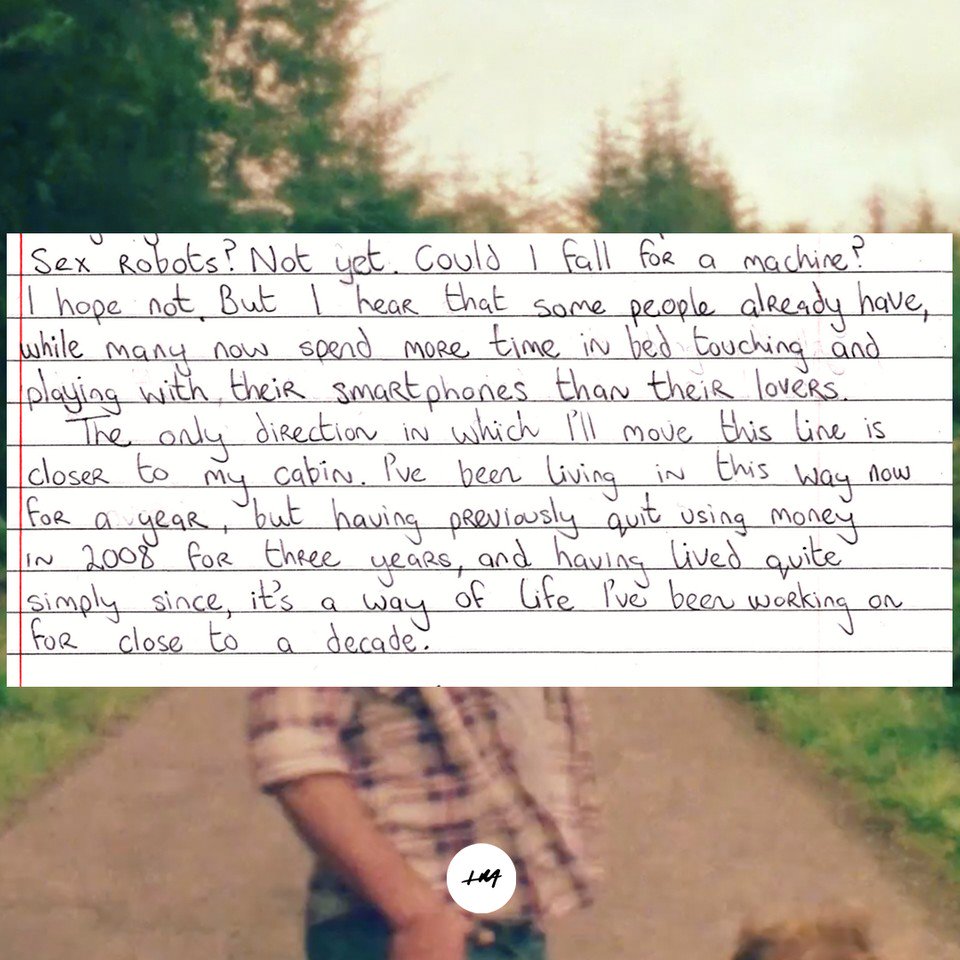 Sex Robots? Not yet. Could I fall for a machine?
I hope not. But I hear that some people already have,
while many now spend more time in bed touching and
playing with their smartphones than their lovers.
The only direction in which I'll move this line is
closer to my cabin. I've been living in this way now
for a year, but having previously quit using money
in 2008 for three years, and having lived quite
simply since, it's a way of life I've been working on
for close to a decade.